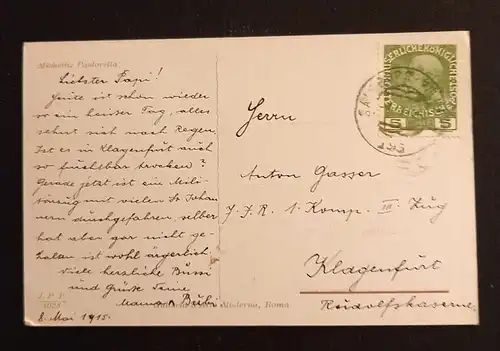 Michetti: Pastorella.
Liebster Papi!
Heute ist schon wieder
so ein heißer Tag, alles
sehnt sich nach Regen.
Ist es in Klagenfurt auch
so furchtbar trocken?
Gerade jetzt ist ein Mili-
tärzug mit vielen
durchgefahren, selber
hat aber gar nicht ge-
halten ist wohl ärgerlich.
Viele herzliche Bussi
und Grüße Deine
Mama Bubi
8. Mai 1915.
J. P. P.
Galleria Moderna, Roma
KAISERLICHE KÖNIGLICHE
ÖSTERREICHISCHE
5 5
Herrn
Anton Gasser
J. J. R. 1. Komp. III. Zug
Klagenfurt
Rudolfskaserne